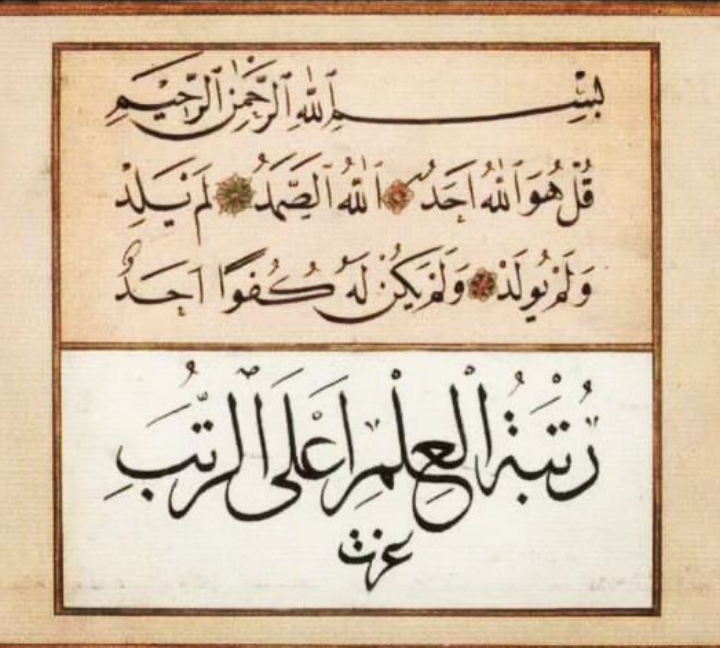 بِسْمِ اللّٰهِ الرَّحْمٰنِ الرَّحِيمِ
قُلْ هُوَ اللّٰهُ اَحَدٌ اَللّٰهُ الصَّمَدُ لَمْ يَلِدْ
وَلَمْ يُولَدْ وَلَمْ يَكُنْ لَهُ كُفُوًا اَحَدٌ
رُتْبَةُ الْعِلْمِ اَعْلَى الرُّتَبِ
عزت